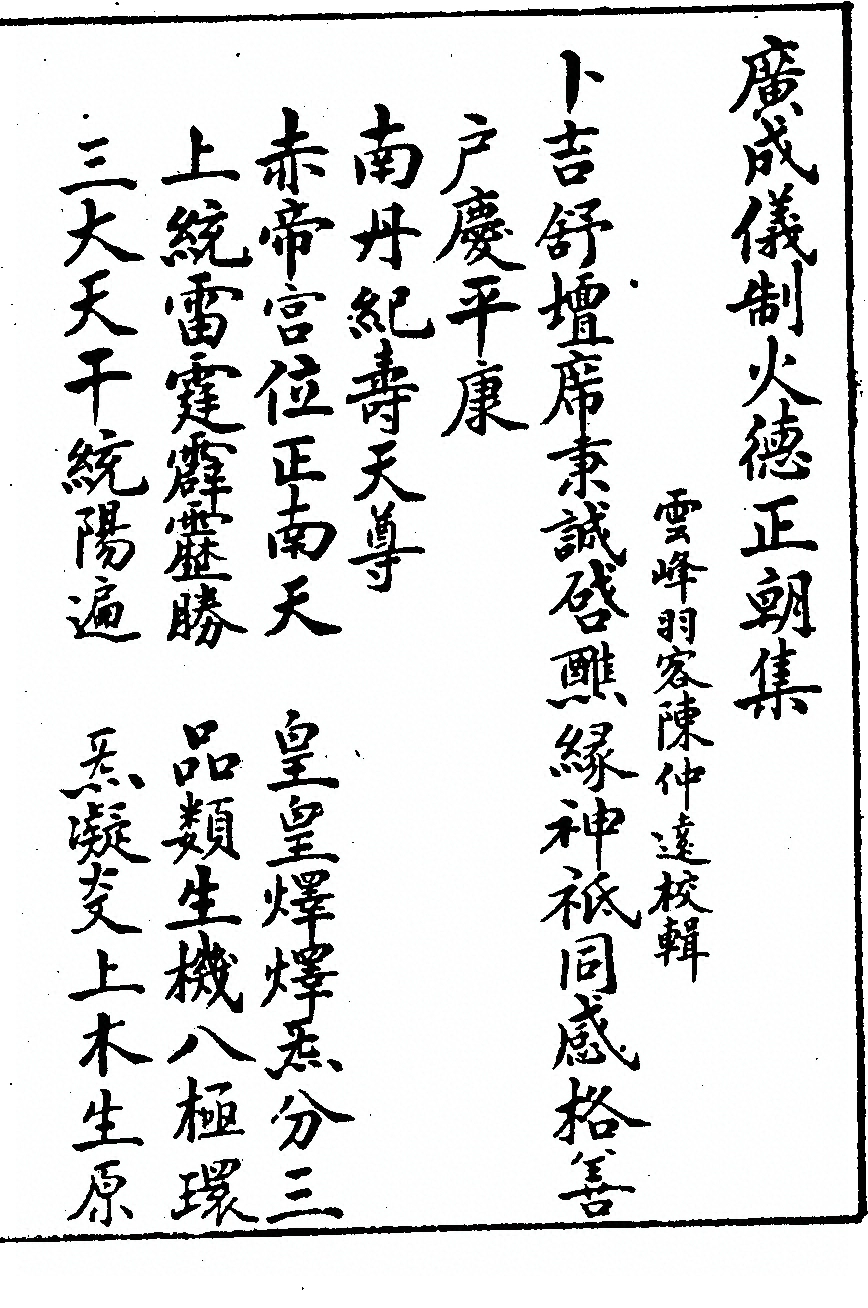 廣成儀制火德正朝集
雲峰羽客陳仲遠校輯
卜吉舒壇席秉誠啓醮緣神祇同感格善
戶慶平康
南丹紀壽天尊
赤帝宮位正南天　皇皇燡燡炁分三
上統雷霆霹靂勝　品類生機八極環
三大天干統陽遍　炁凝爻上木生原